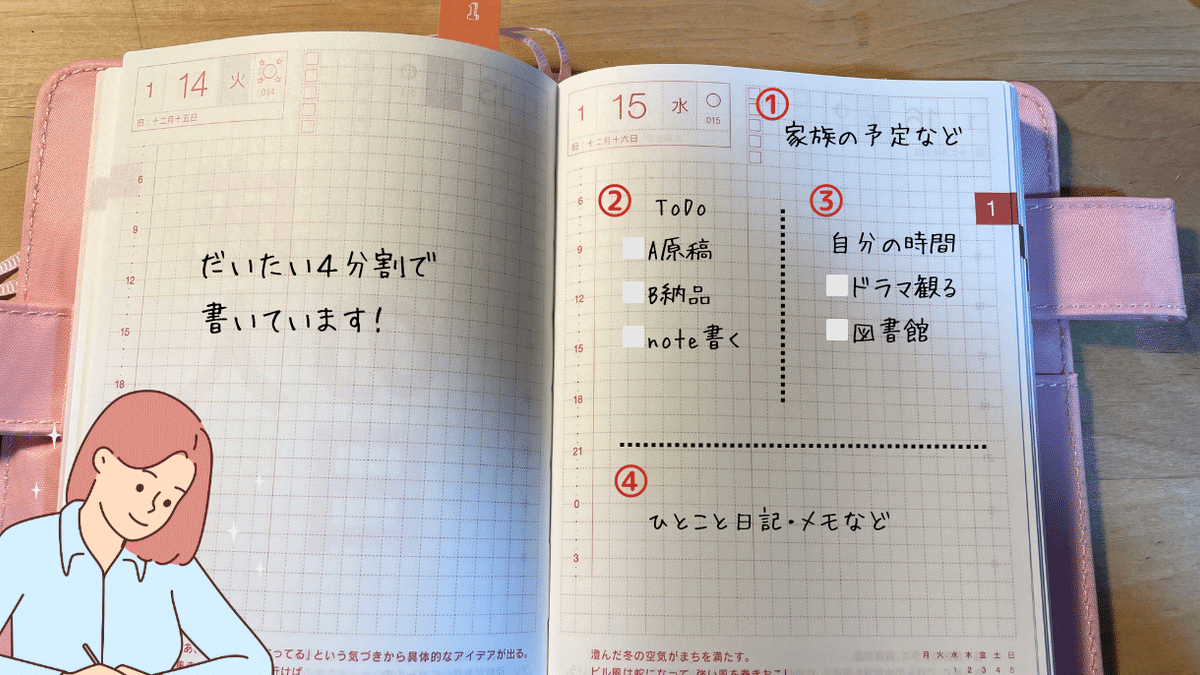 1
1 14 火
014
旧:十二月十五日
6
9
12
15
18
だいたい4分割で
書いています!
ってる」という気づきから具体的なアイデアが出る。
行けば
1 15 水
015
旧:十二月十六日
① 家族の予定など
1
6
9
12
15
18
21
0
3
② ToDo
A原稿
B納品
note書く
③
自分の時間
ドラマ観る
図書館
④
ひとこと日記・メモなど
澄んだ冬の空気がまちを満たす。
月 火 水 木 金 土 日
1 2 3 4 5